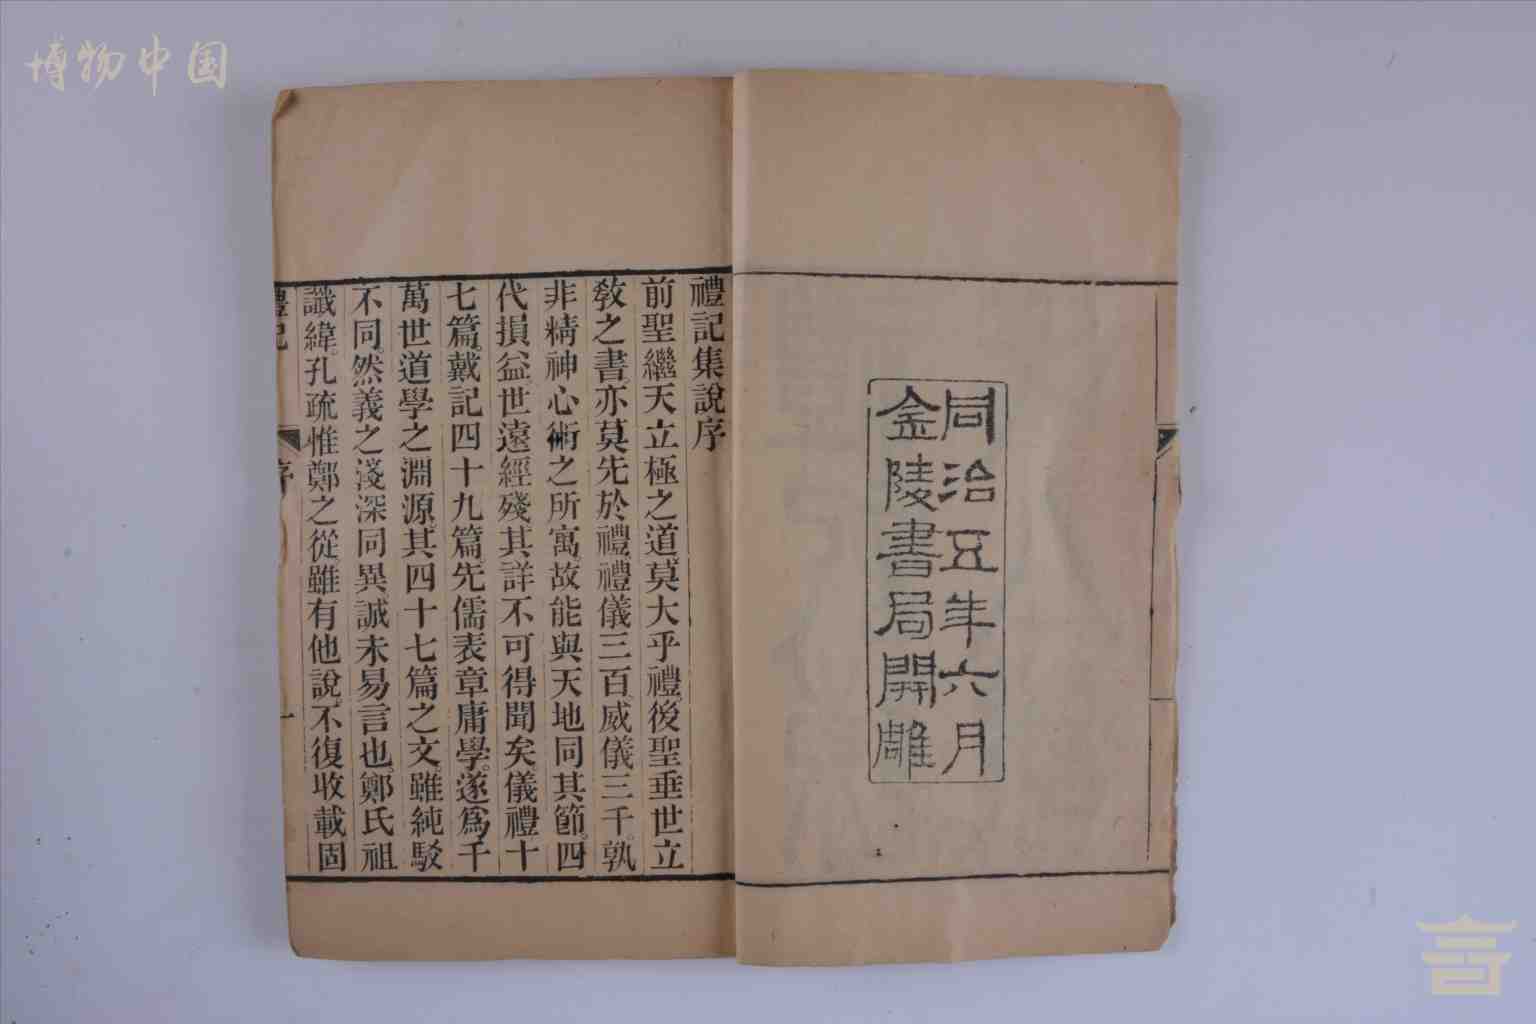 博物中国
同治五年六月
金陵書局開雕
禮記集說序
前聖繼天立極之道。莫大乎禮。後聖垂世立
教之書。亦莫先於禮。禮儀三百。威儀三千。孰
非精神心術之所寓。故能與天地同其節。四
代損益。世遠經殘。其詳不可得聞矣。儀禮十
七篇。戴記四十九篇。先儒表章庸學。遂爲千
萬世道學之淵源。其四十七篇之文。雖純駁
不同。然義之淺深同異。誠未易言也。鄭氏祖
讖緯。孔疏惟鄭之從。雖有他說。不復收載。固
禮記
序
一